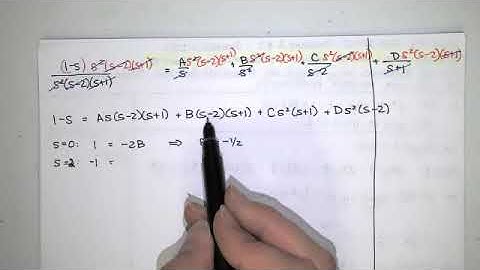 (1-s) s²(s-2)(s+1) / s²(s-2)(s+1) = A s²(s-2)(s+1) / s + B s²(s-2)(s+1) / s² + C s²(s-2)(s+1) / s-2 + D s²(s-2)(s+1) / s+1
1-s = As(s-2)(s+1) + B(s-2)(s+1) + Cs²(s+1) + Ds²(s-2)
s=0: 1 = -2B ⇒ -1/2
s=2 -1 =